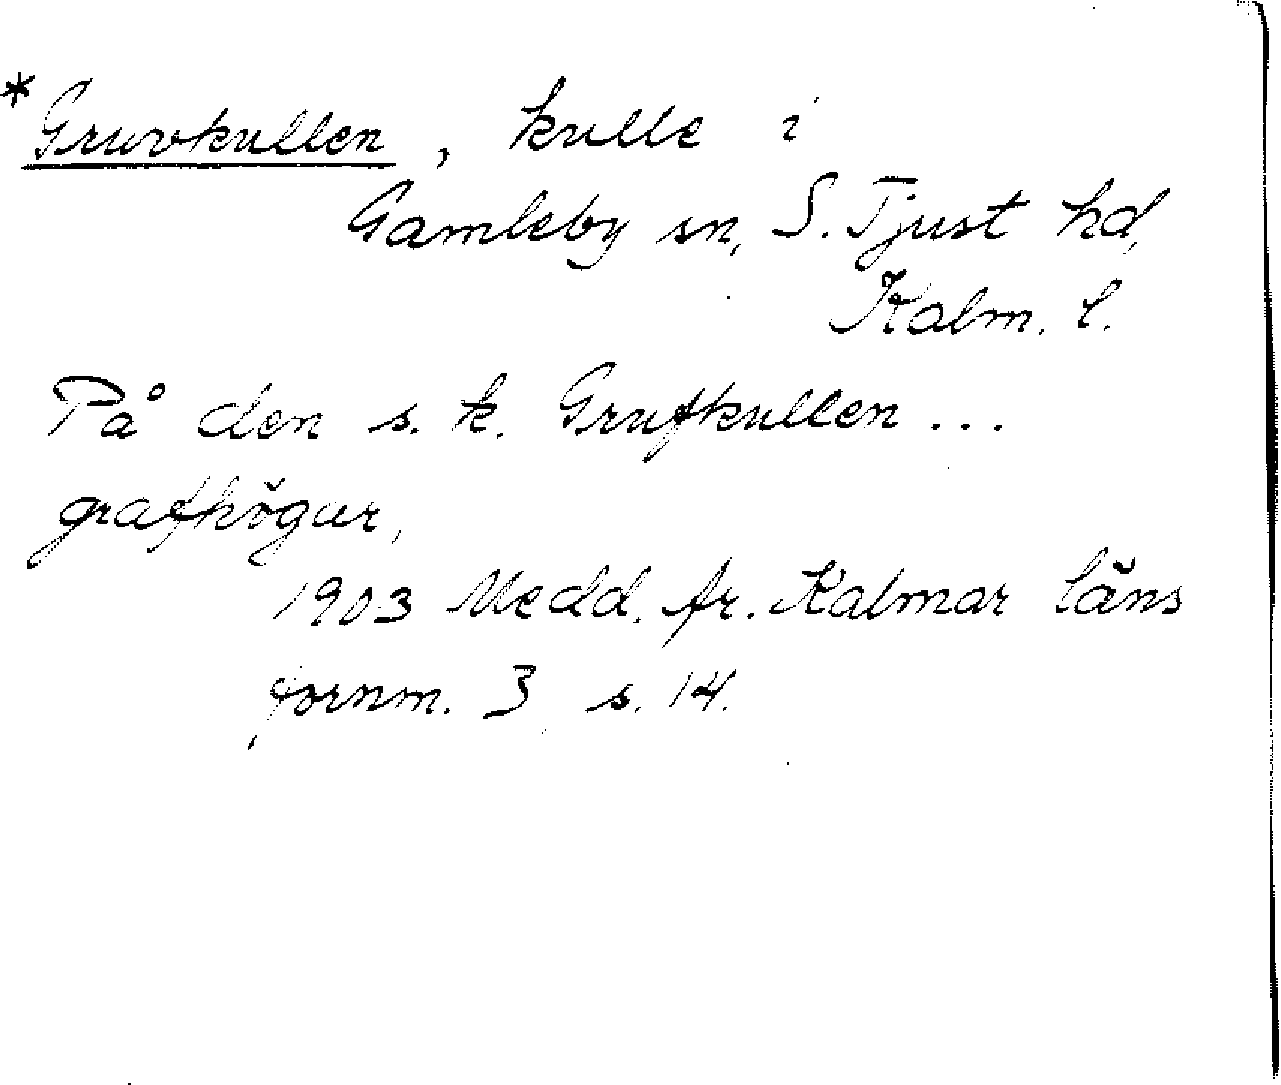 *Gruvkullen, kulle i
Gamleby sn, S. Tjust hd,
Kalm. l.
På den s. k. Grufkullen ...
grafhögar,
1903 Medd. fr. Kalmar läns
fornm. 3 s. 14.